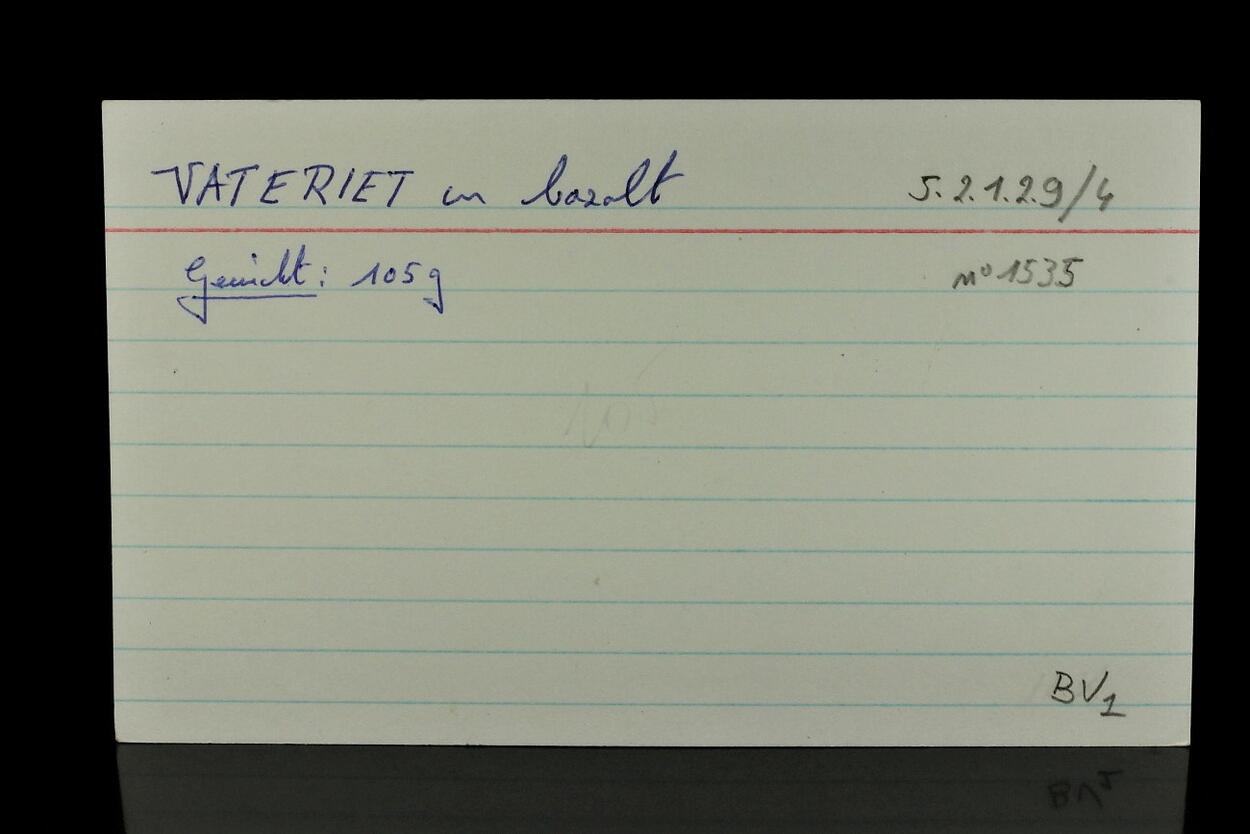 VATERIET in bazalt 5.2.1.2.9/4
Gewicht: 105g nº 1535
105
BV1